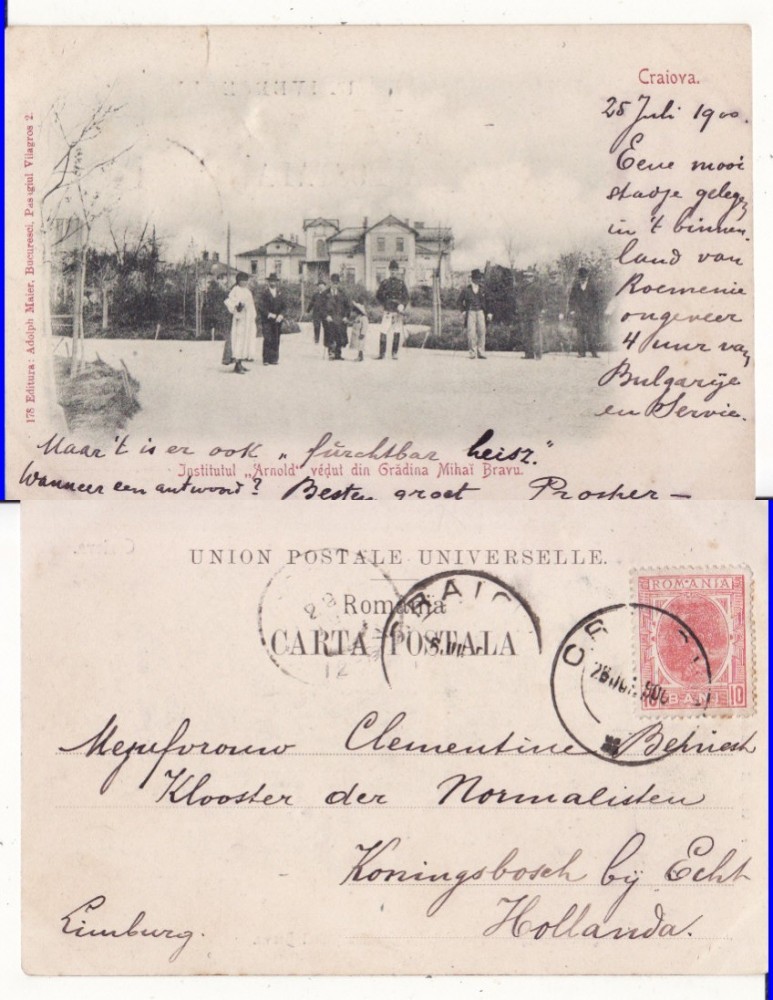 Craiova.
25 Juli 1900.
Eene mooi
stadje gelegen
in 't binnen-
land van
Roemenie
ongeveer
4 uur van
Bulgarije
en Servie.
178 Editura: Adolph Maier, Bucuresci, Pasagiul Vilagros 2.
Maar 't is er ook „fürchtbar heisz."
Institutul „Arnold" vĕdut din Grădina Mihaĭ Bravu.
Wanneer een antwoord? Besten groet Prosher —
UNION POSTALE UNIVERSELLE.
România
CARTA POSTALA
CRAIO
ROMANIA
10 BANI 10
Mejufvrouw Clementine
Klooster der Normalisten
Koningsbosch bij Echt
Limburg. Hollanda.